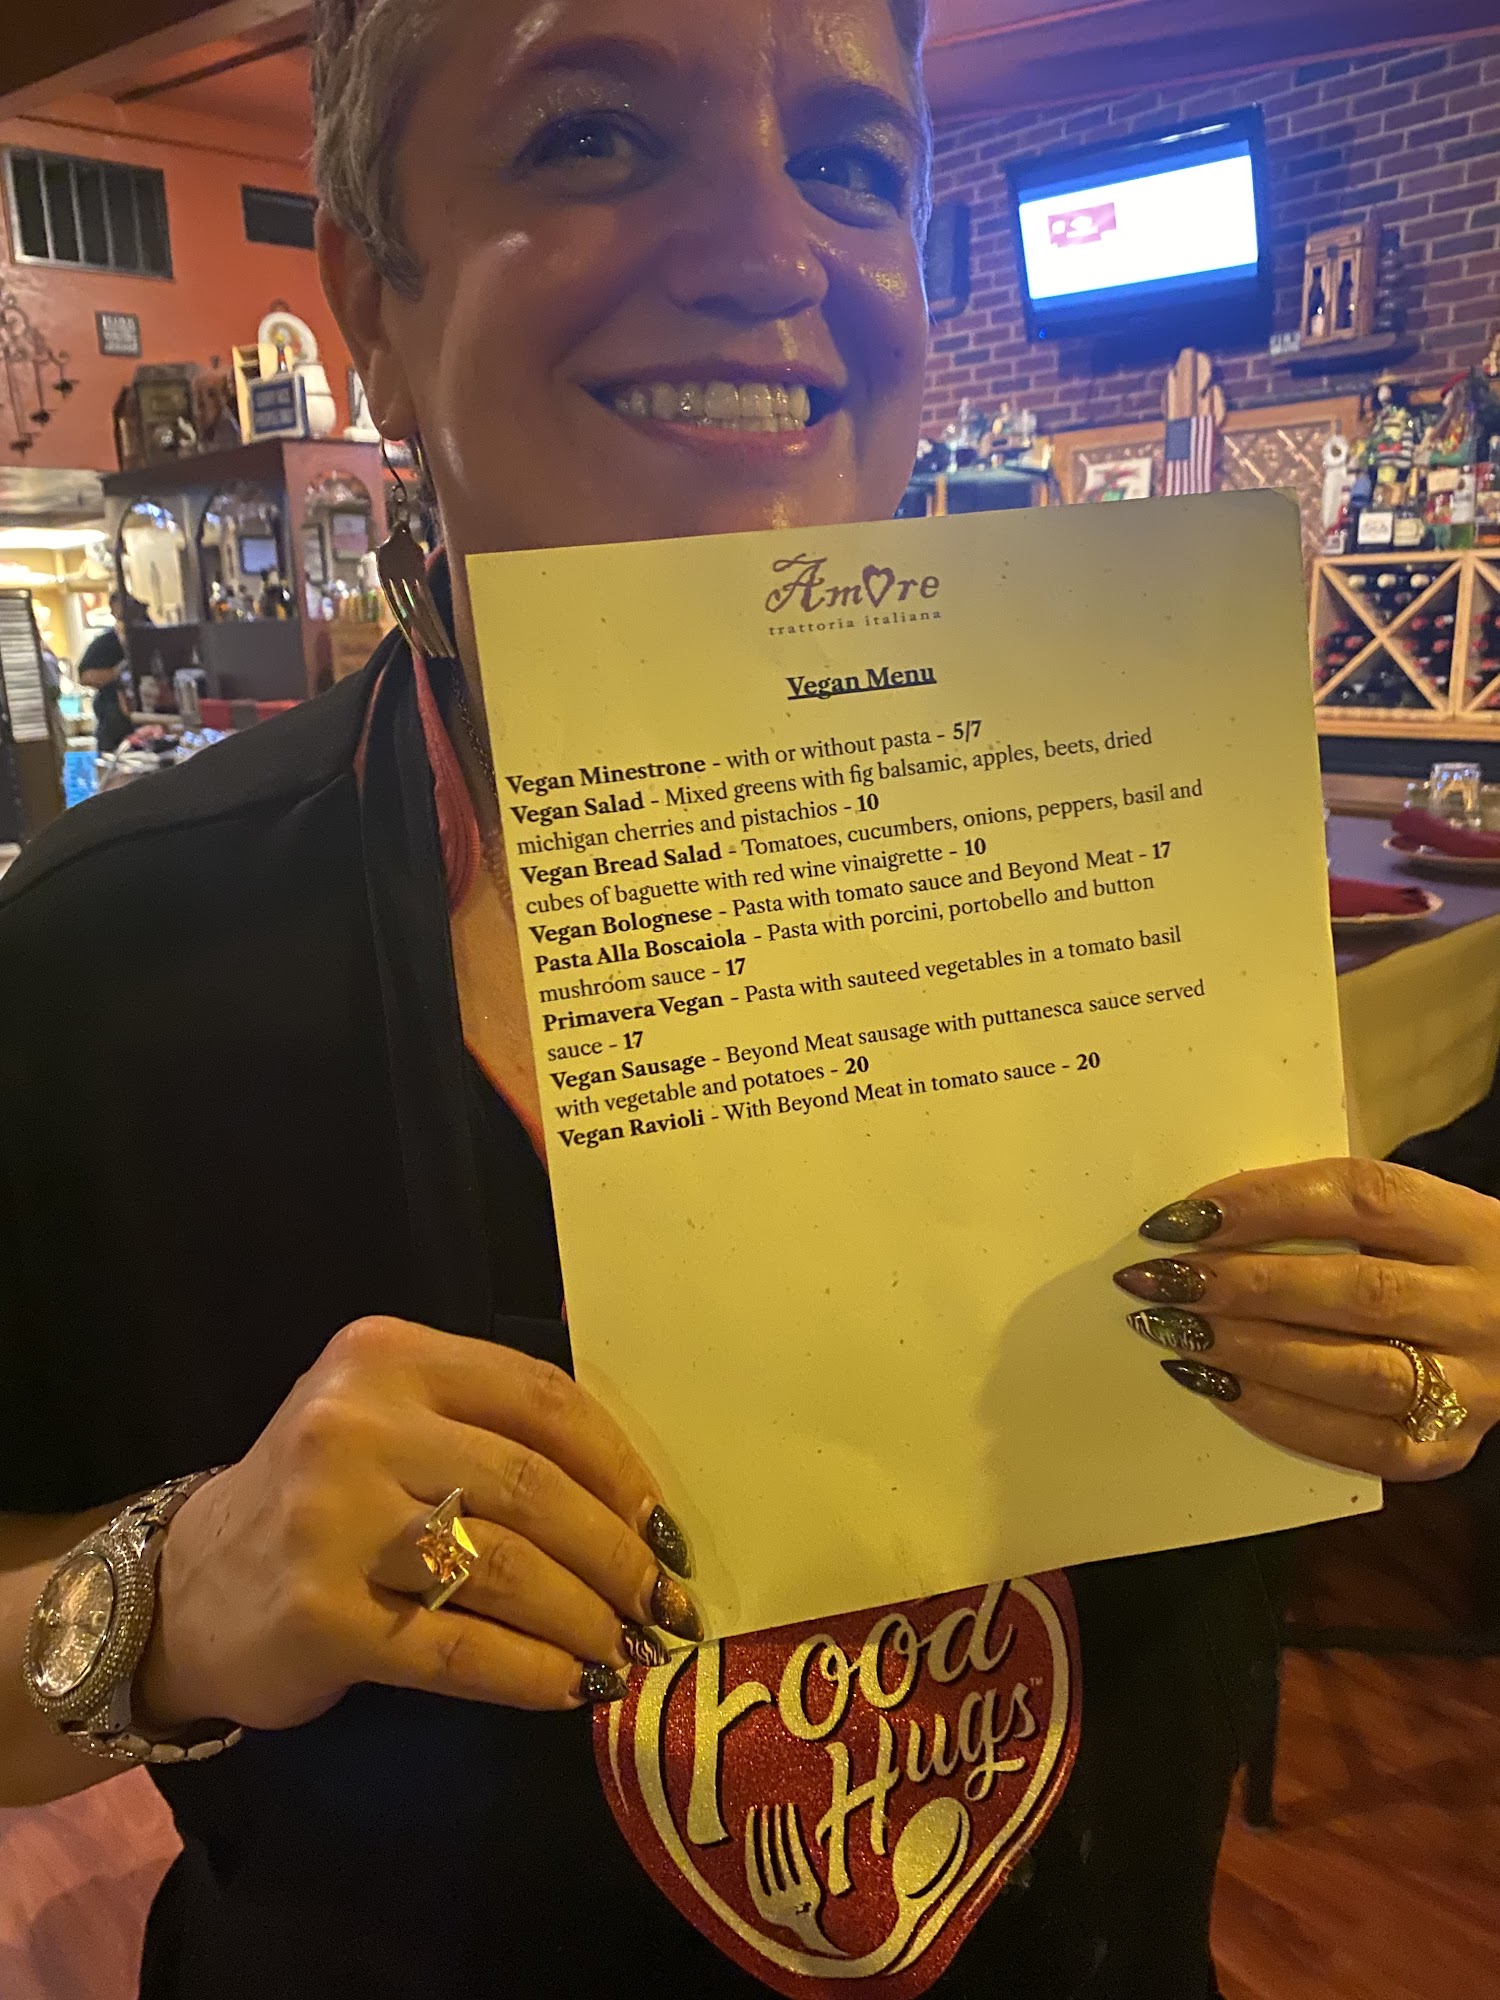 Amore
trattoria italiana
Vegan Menu
Vegan Minestrone - with or without pasta - 5/7
Vegan Salad - Mixed greens with fig balsamic, apples, beets, dried
michigan cherries and pistachios - 10
Vegan Bread Salad - Tomatoes, cucumbers, onions, peppers, basil and
cubes of baguette with red wine vinaigrette - 10
Vegan Bolognese - Pasta with tomato sauce and Beyond Meat - 17
Pasta Alla Boscaiola - Pasta with porcini, portobello and button
mushroom sauce - 17
Primavera Vegan - Pasta with sauteed vegetables in a tomato basil
sauce - 17
Vegan Sausage - Beyond Meat sausage with puttanesca sauce served
with vegetable and potatoes - 20
Vegan Ravioli - With Beyond Meat in tomato sauce - 20
Food
Hugs™